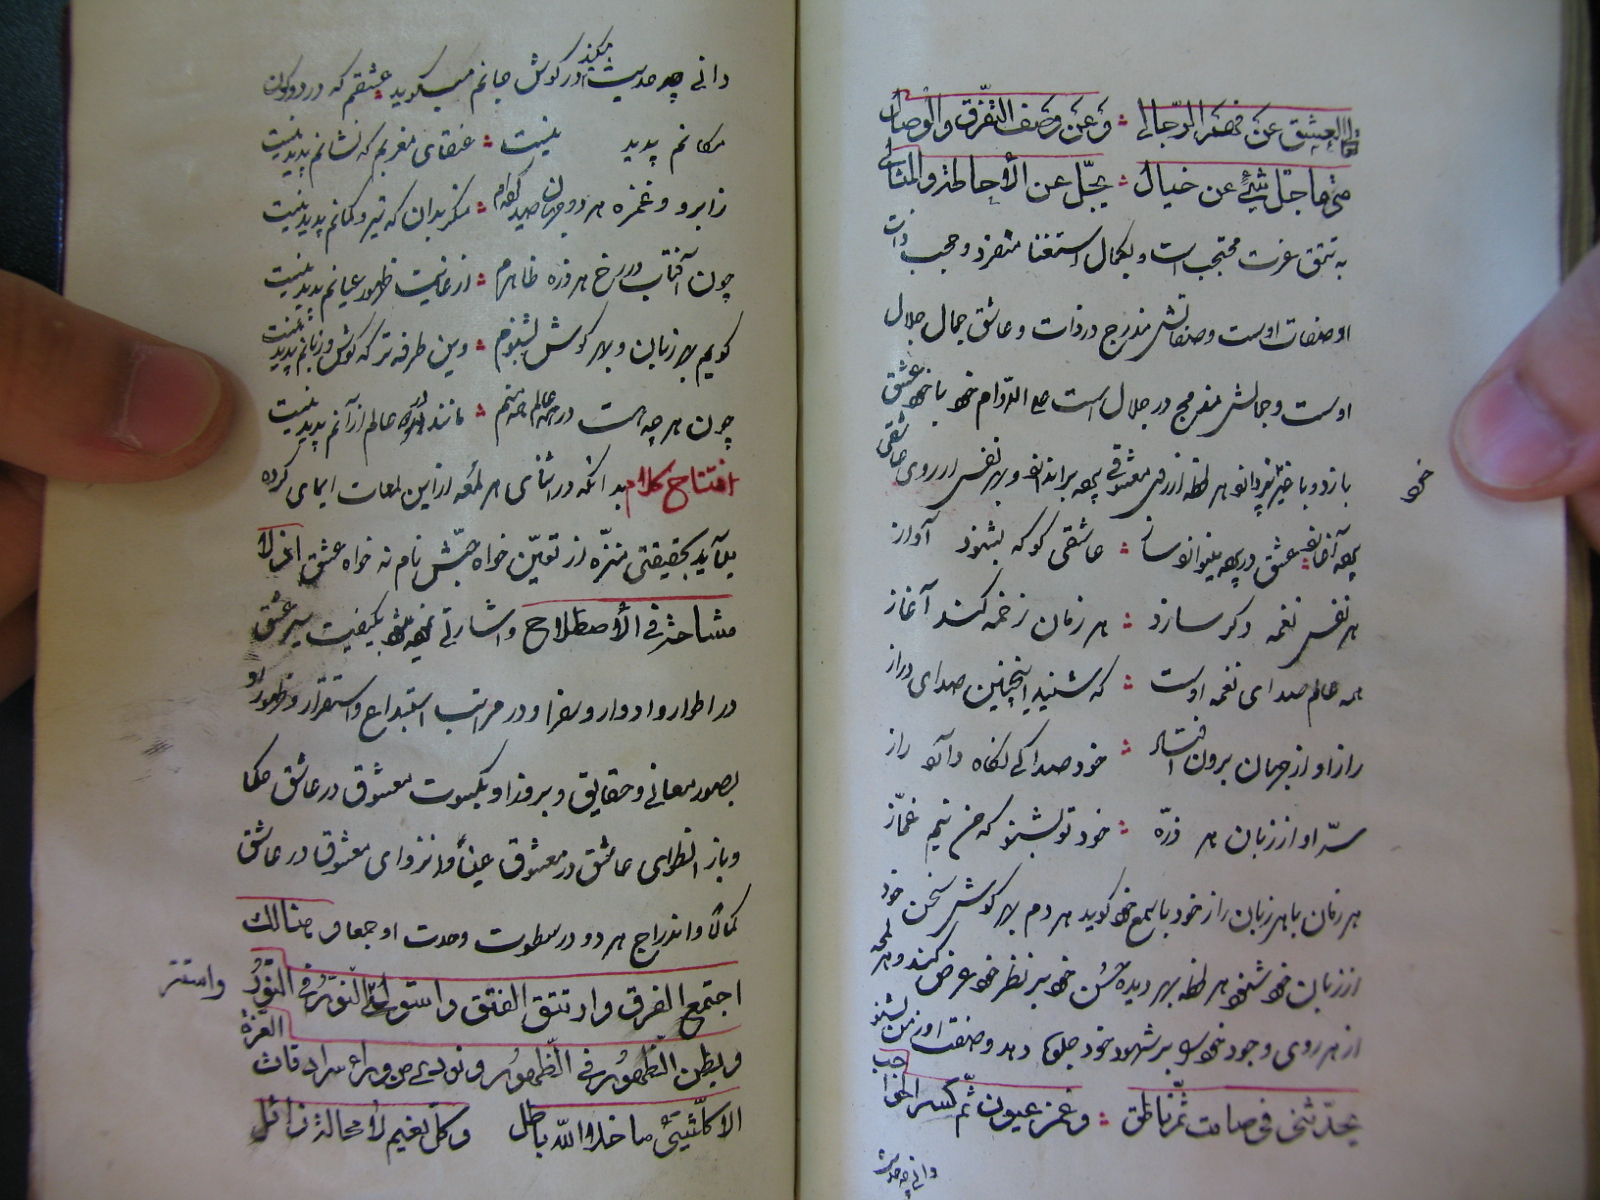 تعالی العشق عن فهم الرجال ؞ و عن وصف التفرق والوصال
متی ما جل شیئ عن خیال ؞ یجل عن الاحاطة والمثال
به تتق عزت محتجب است و بکمال استغنا متفرد و حجب ذات
او صفات اوست و صفاتش مندرج در ذات و عاشق جمال جلال
اوست و جمالش مندمج در جلال است علی الدوام خود با خود عشق
بازد و با غیر نپردازد هر لحظه از روی معشوقی پرده براندازد و هر نفس از روی عاشقی
پرده آغازد عشق در پرده مینوازد ساز ؞ عاشقی کو که بشنود آواز
هر نفس نغمه دکر سازد ؞ هر زمان زخمه کند آغاز
همه عالم صدای نغمه اوست ؞ که شنید اینچنین صدای دراز
راز او از جهان برون افتاد ؞ خود صدا کی نکاه دارد راز
سرّ او از زبان هر ذرّه ؞ خود تو بشنو که من نیم غمّاز
هر زمان با هر زبان راز خود با سمع خود کوید هر دم بهر کوش سخن خود
از زبان خود شنود هر لحظه بهر دیده حُسن خود بر نظر خود عرض کند و هر لمحه
از هر روی وجود خود بر شهود خود جلوه دهد وصفت او ز من بشنو
یحدثنی فی صامت ثم ناطق ؞ و غمز عیون ثم کسر الحواجب
دانی چه حدیث
دانی چه حدیث میکند در کوش جانم میکوید عشقم که در دو کون
مکانم پدید نیست ؞ عنقای مغربم که نشانم پدید نیست
ز ابرو و غمزه هر دو جهان صید کرده‌ام ؞ منکر بدان که تیر و کمانم پدید نیست
چون آفتاب در رخ هر ذره ظاهرم ؞ از غایت ظهور عیانم پدید نیست
کویم بهر زبان و بهر کوش بشنوم ؞ وین طرفه تر که کوش و زبانم پدید نیست
چون هر چه هست در همه عالم همه منم ؞ مانند در دو عالم از آنم پدید نیست
افتتاح کلام بدانکه در اثنای هر لمعه از این لمعات ایمای کرده
میآید بحقیقتی منزه از تعین خواه حبّش نام نه خواه عشق اذ لا
مشاحة فی الاصطلاح و اشارتی نموده میشود بکیفیت سیر عشق
در اطوار و ادوار و سفر او در مراتب استیداع و استقرار و ظهور او
بصور معانی و حقایق و بروز او بکسوت معشوق در عاشق حکما
و باز انطوای عاشق در معشوق عیناً و انزوای معشوق در عاشق
کمالاً و اندراج هر دو در سطوت وحدت او جمعا و هنالک
اجتمع الفرق و ارتتق الفتق و استولی النور فی النور
و بطن الظهور فی الظهور و نودی من وراء سرادقات العزة
الا کل شیئ ما خلا الله باطل و کل نعیم لا محالة زائل